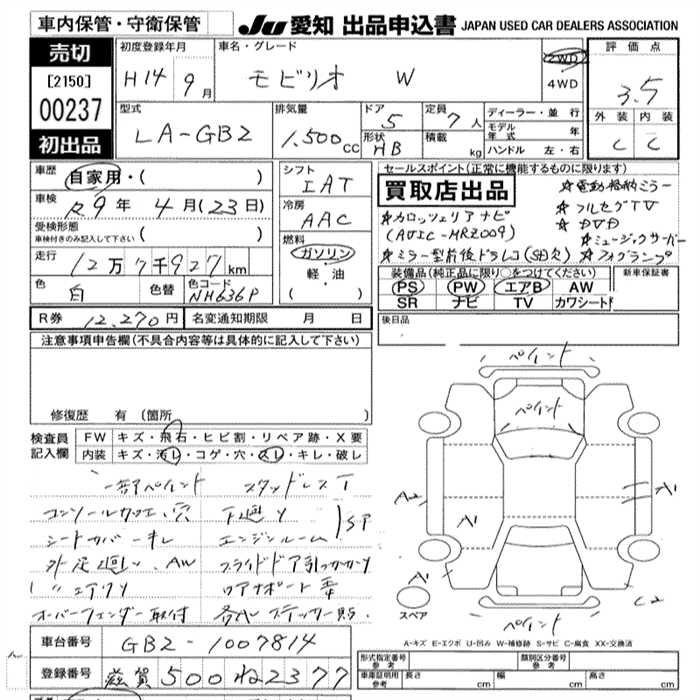 車内保管・守衛保管
JU 愛知 出品申込書 JAPAN USED CAR DEALERS ASSOCIATION
売切
[2150]
00237
初出品
初度登録年月
H14 9月
車名・グレード
モビリオ W
2WD
4WD
評価点
3.5
外装 内装
C C
型式
LA-GB2
排気量
1,500cc
ドア
5
形状
HB
定員
7人
積載
kg
ディーラー・並行
モデル年式 年
ハンドル 左・右
車歴
自家用・( )
車検
R9年 4月(23日)
受検形態
車検付きのみ記入して下さい ( )
走行
12万7千927km
色
白
色替
色コード
NH636P
シフト
IAT
冷房
AAC
燃料
ガソリン
軽・油
( )
セールスポイント(正常に機能するものに限ります)
買取店出品
☆電動格納ミラー
☆フルセグTV
☆DVD
☆ミュージックサーバー
☆フォグランプ
☆カロッツェリアナビ
(AVIC-MRZ009)
☆ミラー型前後ドラレコ(SD欠)
装備品(純正品に限り○をつけてください)
PS PW エアB AW
SR ナビ TV カワシート
新車保証書
R券 12,270円
名変通知期限 月 日
後日品
注意事項申告欄(不具合内容等は具体的に記入して下さい)
修復歴 有(箇所
検査員記入欄
FW キズ・飛石・ヒビ割・リペア跡・X要
内装 キズ・汚レ・コゲ・穴・スレ・キレ・破レ
一部ペイント スタッドレスT
コンソール 穴 下廻り
シートカバー キレ エンジンルーム
AW
エアロ リアバンパー
オーバーフェンダー取付 ステッカー貼
ペイント
ペイント
A2
A1
A1
A1
A1
C2
スペア
A-キズ E-エクボ U-凹み W-補修跡 S-サビ C-腐食 XX-交換済
車台番号 GB2-1007814
登録番号 滋賀 500 ね 2377
形式指定番号
参考
類別区分番号
参考
車庫証明用
参考
長さ cm
幅 cm
高さ cm